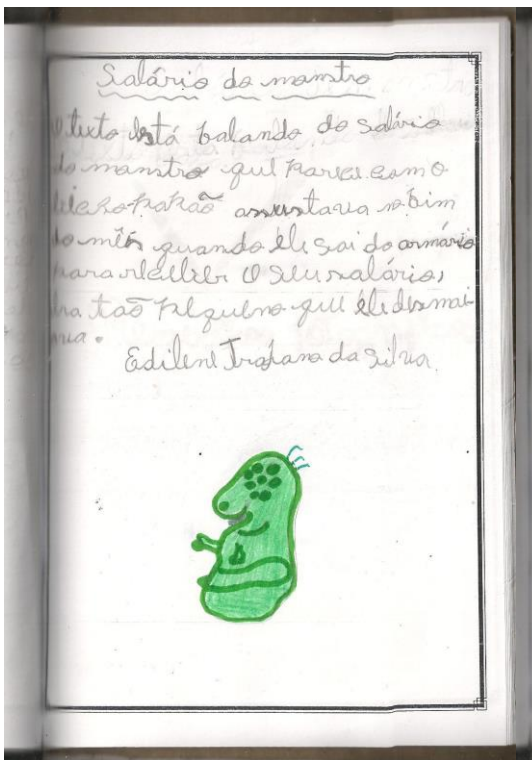 Salário do monstro
O texto está falando do salário
do monstro que parece como
bichopapão assustava no fim
do mês quando ele sai do armário
para receber o seu salário,
era tão pequeno que ele desmai-
ava.
Edilene Trajano da Silva.